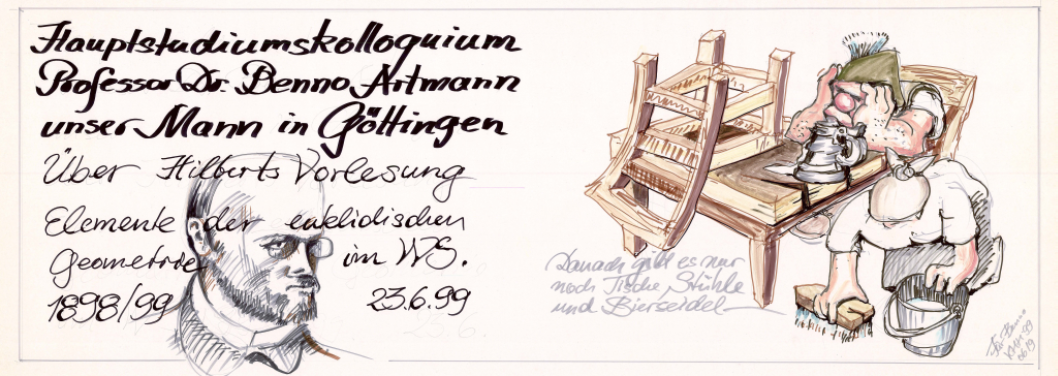 Hauptstudiumskolloquium
Professor Dr. Benno Artmann
unser Mann in Göttingen
Über Hilberts Vorlesung
Elemente der euklidischen
Geometrie im WS.
1898/99 23.6.99
Danach gibt es nur
noch Tische, Stühle
und Bierseidel
Für Benno
99